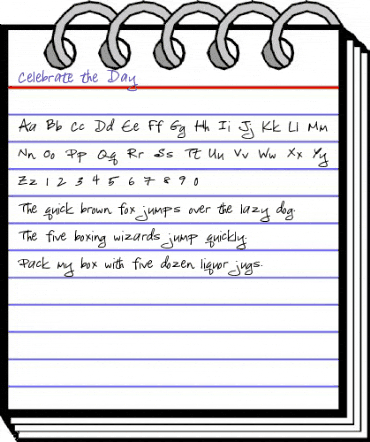 Celebrate the Day
Aa Bb Cc Dd Ee Ff Gg Hh Ii Jj Kk Ll Mm
Nn Oo Pp Qq Rr Ss Tt Uu Vv Ww Xx Yy
Zz 1 2 3 4 5 6 7 8 9 0
The quick brown fox jumps over the lazy dog.
The five boxing wizards jump quickly.
Pack my box with five dozen liquor jugs.